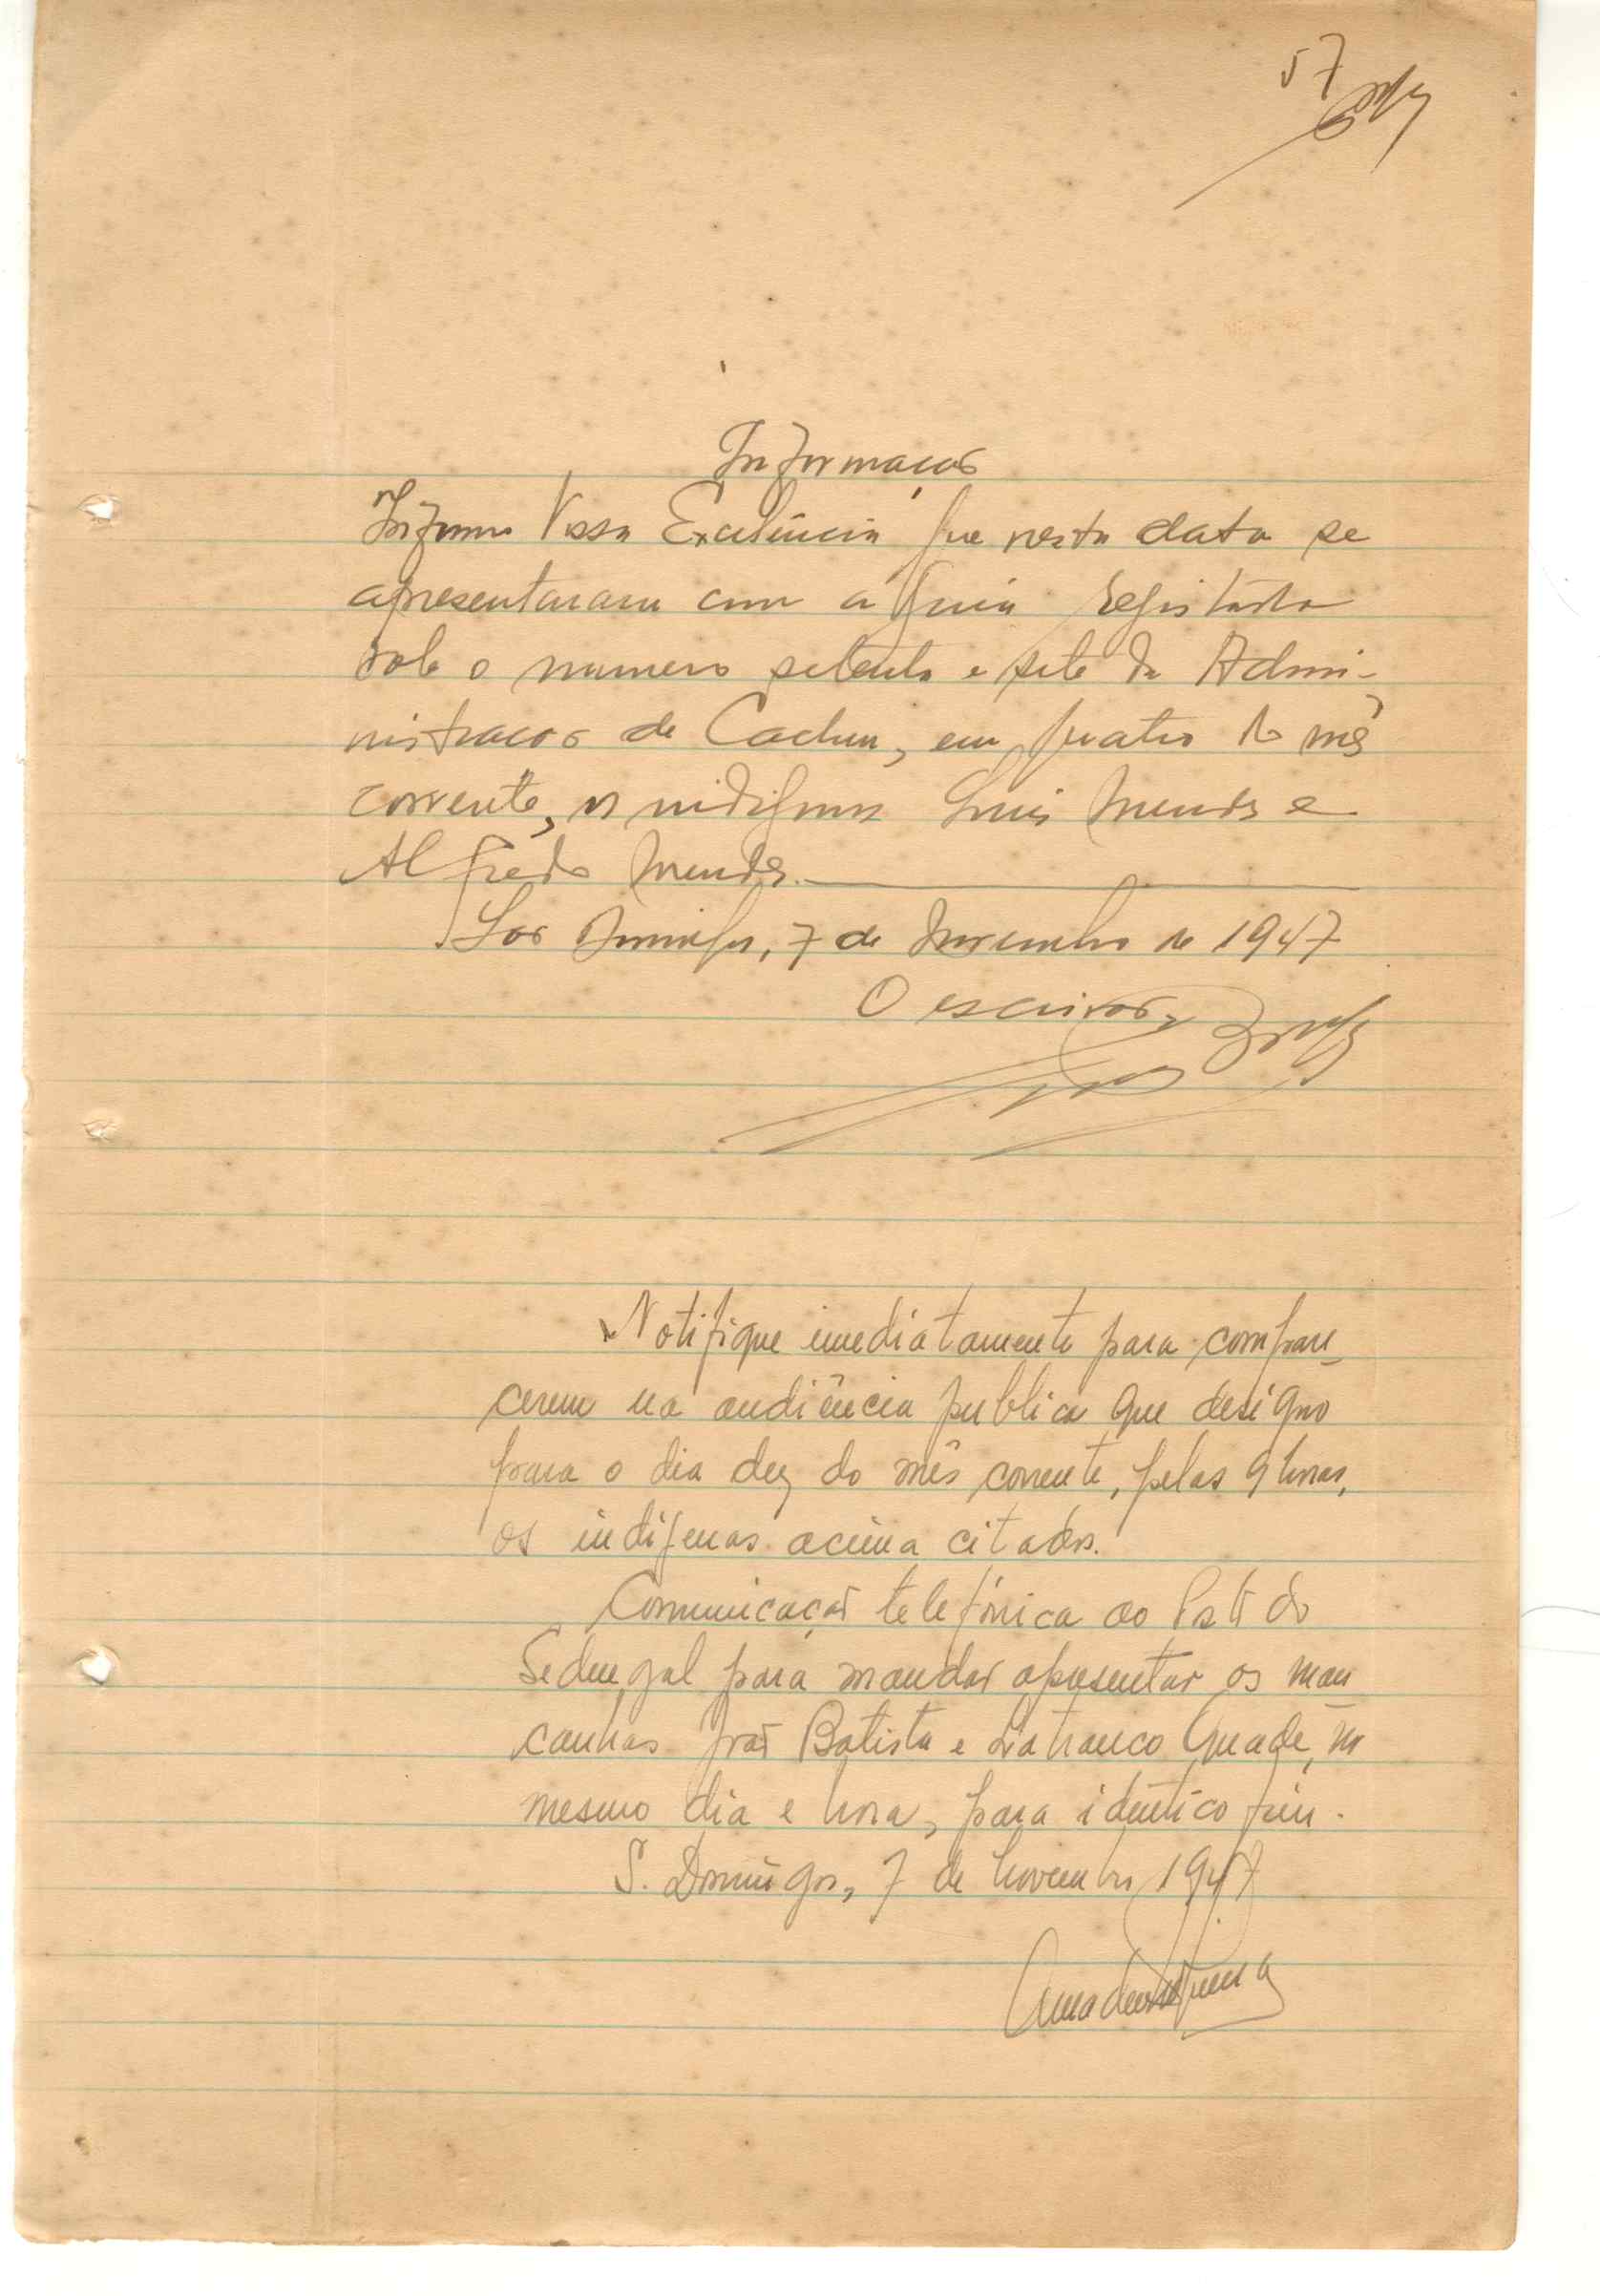 57
Informação
Informo Vossa Excelência que nesta data se
apresentaram com a guia registada
sob o numero setenta e sete da Admi-
nistração de Cacheu, em quatro do mês
corrente, os indigenas Luis Mendes e
Alfredo Mendes.
São Domingos, 7 de Novembro de 1947
O escrivão,
Notifique imediatamente para compare-
cerem na audiência publica que designo
para o dia dez do mês corrente, pelas 9 horas,
os indígenas acima citados.
Comunicação telefónica ao Posto do
Sedengal para mandar apresentar os man-
canhas João Batista e Quade, no
mesmo dia e hora, para idêntico fim.
S. Domingos, 7 de Novembro 1947